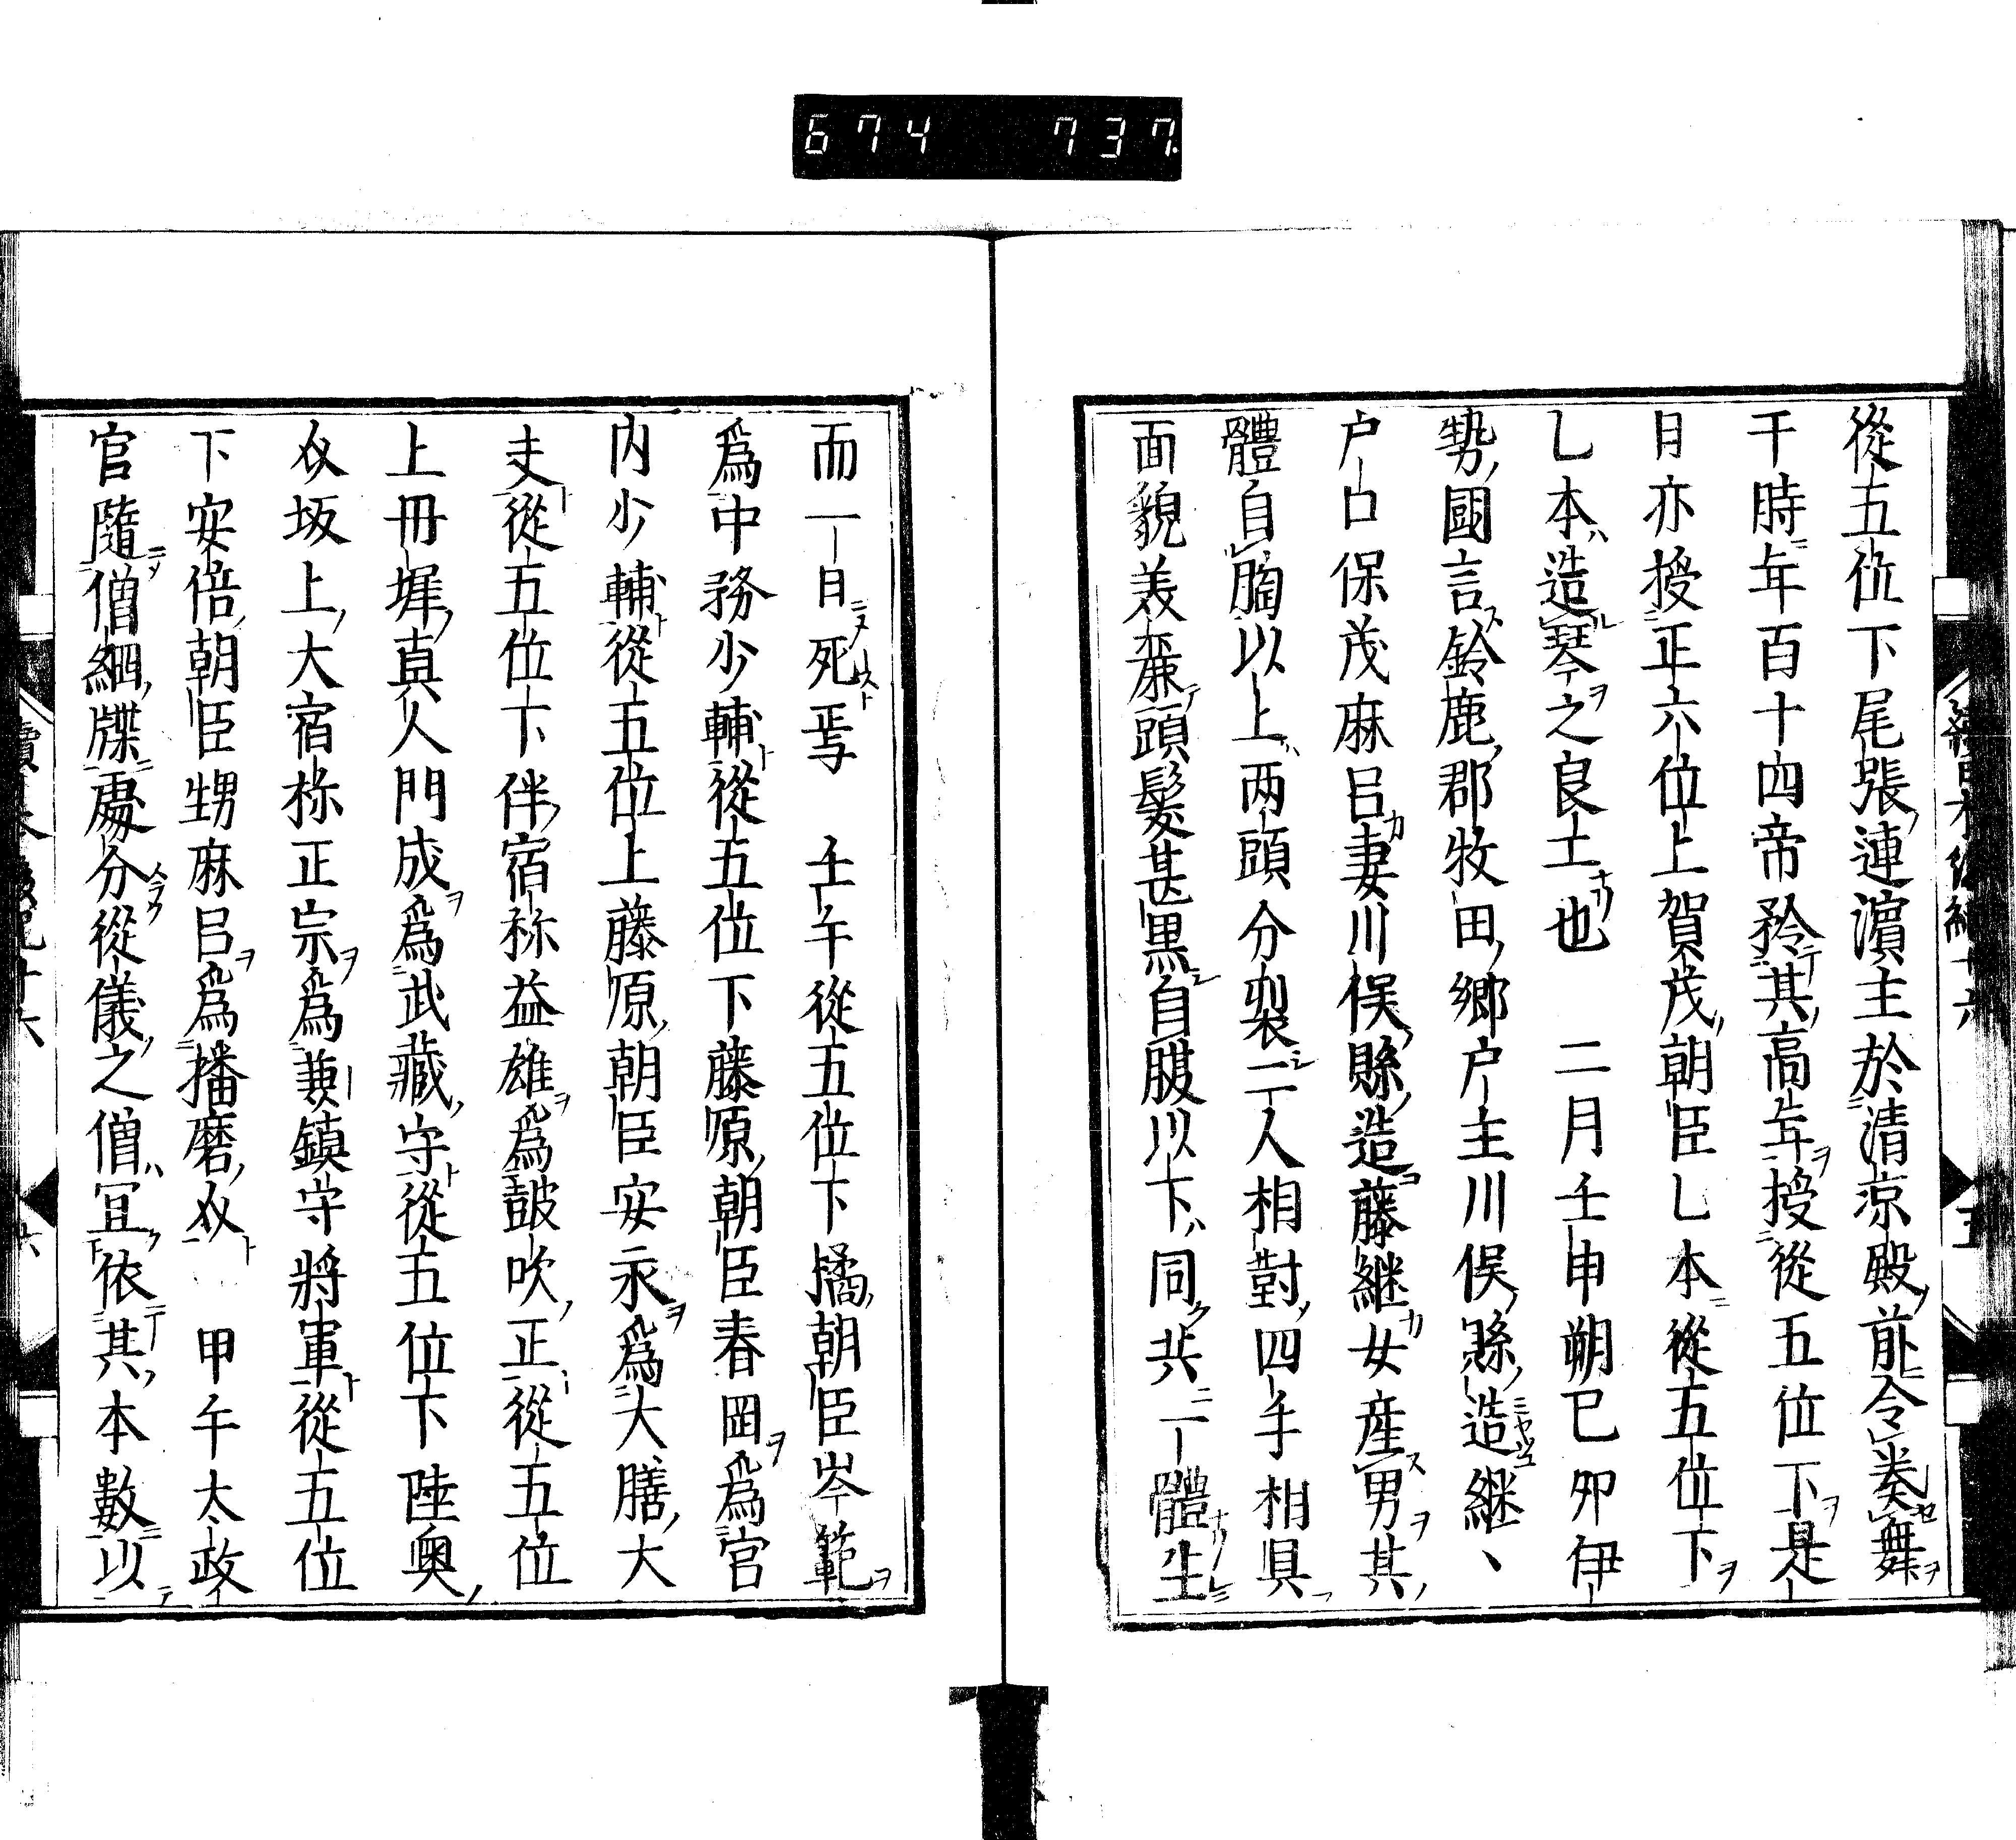 674 737
從五位下尾張連濵主於清凉殿前令奏舞
于時年百十四帝矜其高年授從五位下是
月亦授正六位上賀茂朝臣乚本從五位下
乚本造琴之良土也　二月壬申朔巳夘伊
勢國言鈴鹿郡牧田鄉户主川俣縣造継、
户口保茂麻呂妻川俣縣造藤継女産男其
體自胸以上两頭分裂二人相對四手相具
面貌美麗頭髮甚黒自腹以下同共一體生
而一日死焉　壬午從五位下橘朝臣岑範
爲中務少輔從五位下藤原朝臣春岡爲宮
内少輔從五位上藤原朝臣安永爲大膳大
夫從五位下伴宿祢益雄爲鼓吹正從五位
上丹墀真人門成爲武藏守從五位下陸奥
介坂上大宿祢正宗爲兼鎮守將軍從五位
下安倍朝臣甥麻呂爲播磨介　甲午太政
官隨僧綱牒處分從儀之僧冝依其本數以